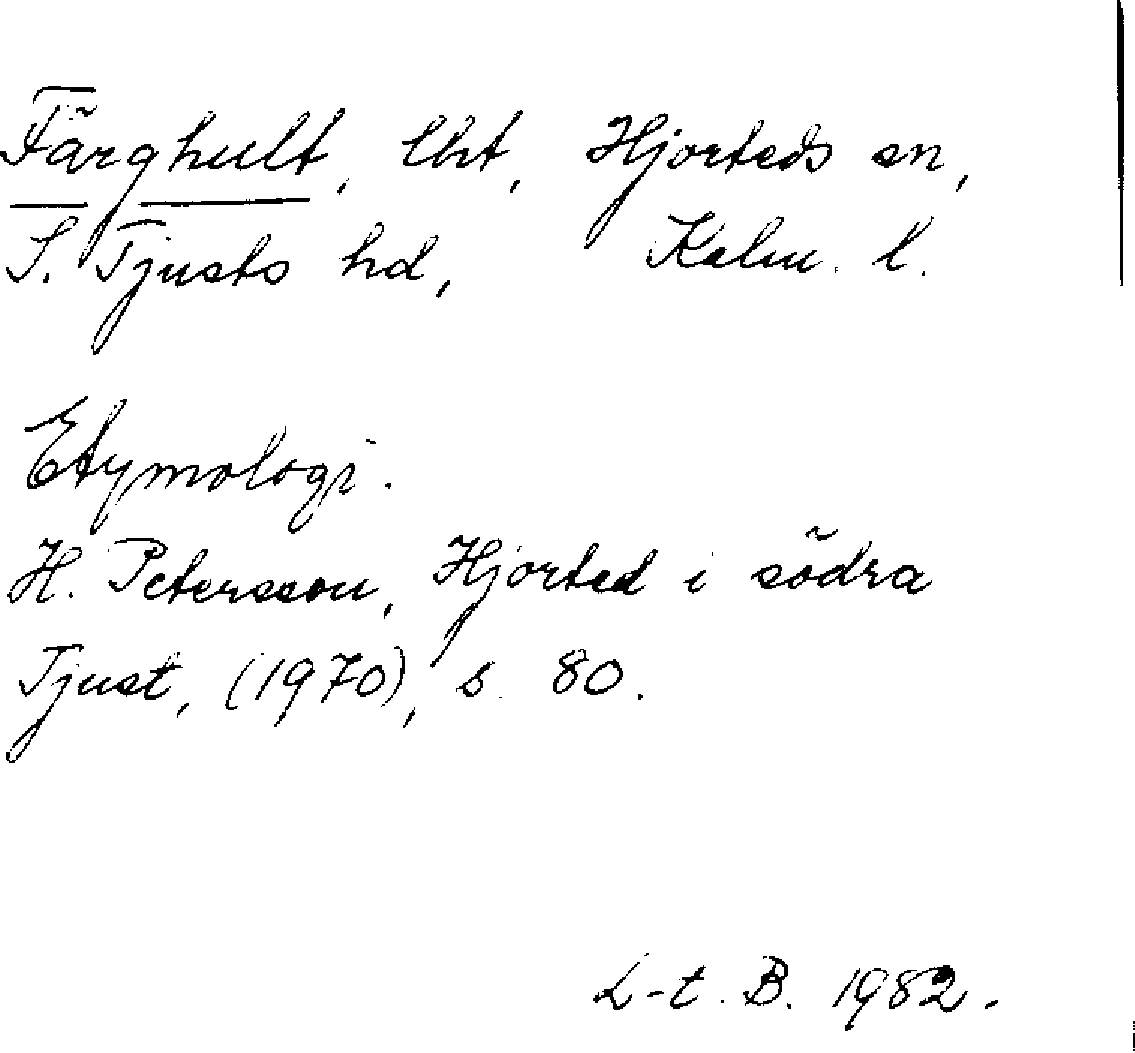 Färghult, lht, Hjorteds sn,
S. Tjusts hd, Kalm. l.
Etymologi.
H. Petersson, Hjorted i södra
Tjust, (1970), s. 80.
L-t. B. 1982.